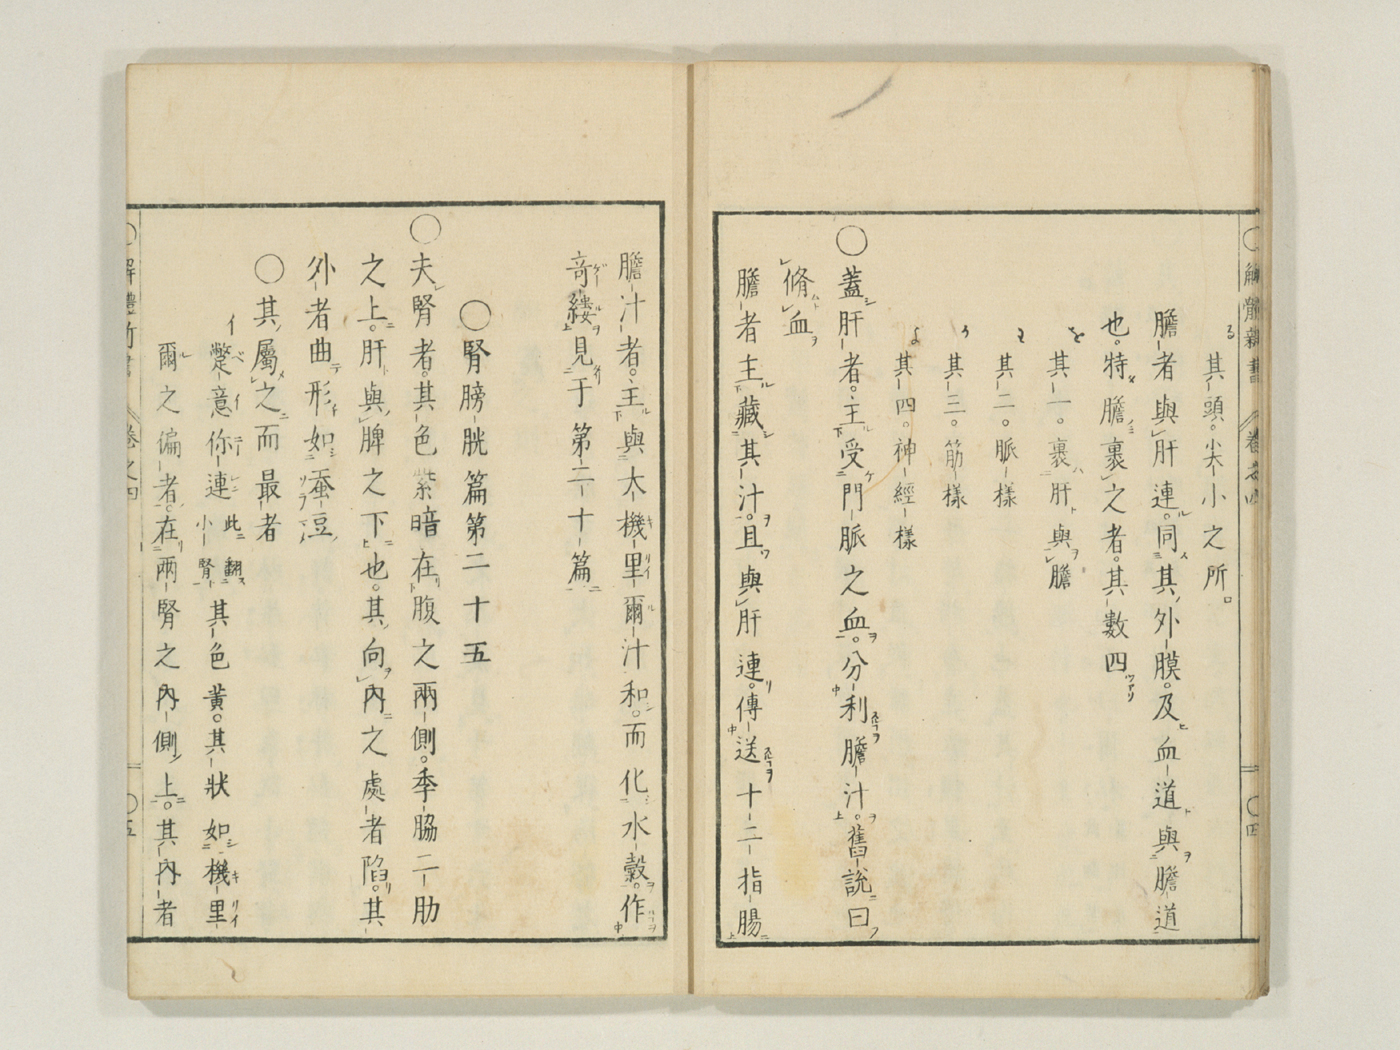 其頭。尖小之所。
膽者與肝連。同其外膜。及血道與膽道
也。特膽裹之者。其數四
其一。裹肝與膽
其二。脈樣
其三。筋樣
其四。神經樣
○蓋肝者。主受門脈之血。分利膽汁。舊說曰
脩血
膽者主藏其汁。且與肝連。傳送十二指腸
膽汁者、主與大機里爾汁和。而化水穀。作
奇縷見于第二十篇
○腎膀胱篇第二十五
○夫腎者。其色紫暗在腹之兩側。季脇二肋
之上。肝與脾之下也。其向內之處者陷。其
外者曲形如蚕豆
○其屬之而最者
蹩意你連此翻小腎其色黃。其狀如機里
爾之偏者。在兩腎之內側上。其內者